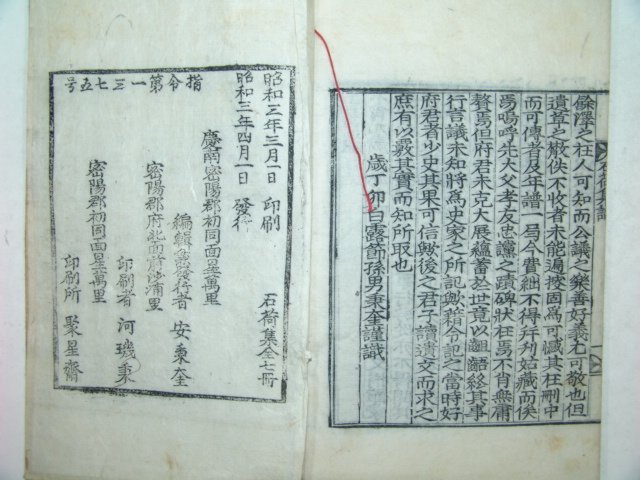 餘澤之在人可知而公議之樂善好義尤可敬也但
遺草之散佚不收者未能遍搜固爲可憾其在刪中
而可傳者及年譜一局今費絀不得幷列姑藏而俟
焉嗚呼先大父孝友忠讜之蹟碑狀在焉不肖無庸
贅焉但府君未克大展蘊蓄於世竟以齟齬終其事
行言議未知將爲史家之所記歟藉令記之當時好
府君者少史其果可信歟後之君子讀遺文而求之
庶有以覈其實而知所取也
歲丁卯白露節孫男秉奎謹識
昭和三年三月一日 印刷
昭和三年四月一日 發行
石荷集全七冊
慶南密陽郡初同面星萬里
編輯兼發行者 安秉奎
密陽郡府北面前浦里
印刷者 河璣秉
密陽郡初同面星萬里
印刷所 聚星齋
指令第一三七五号